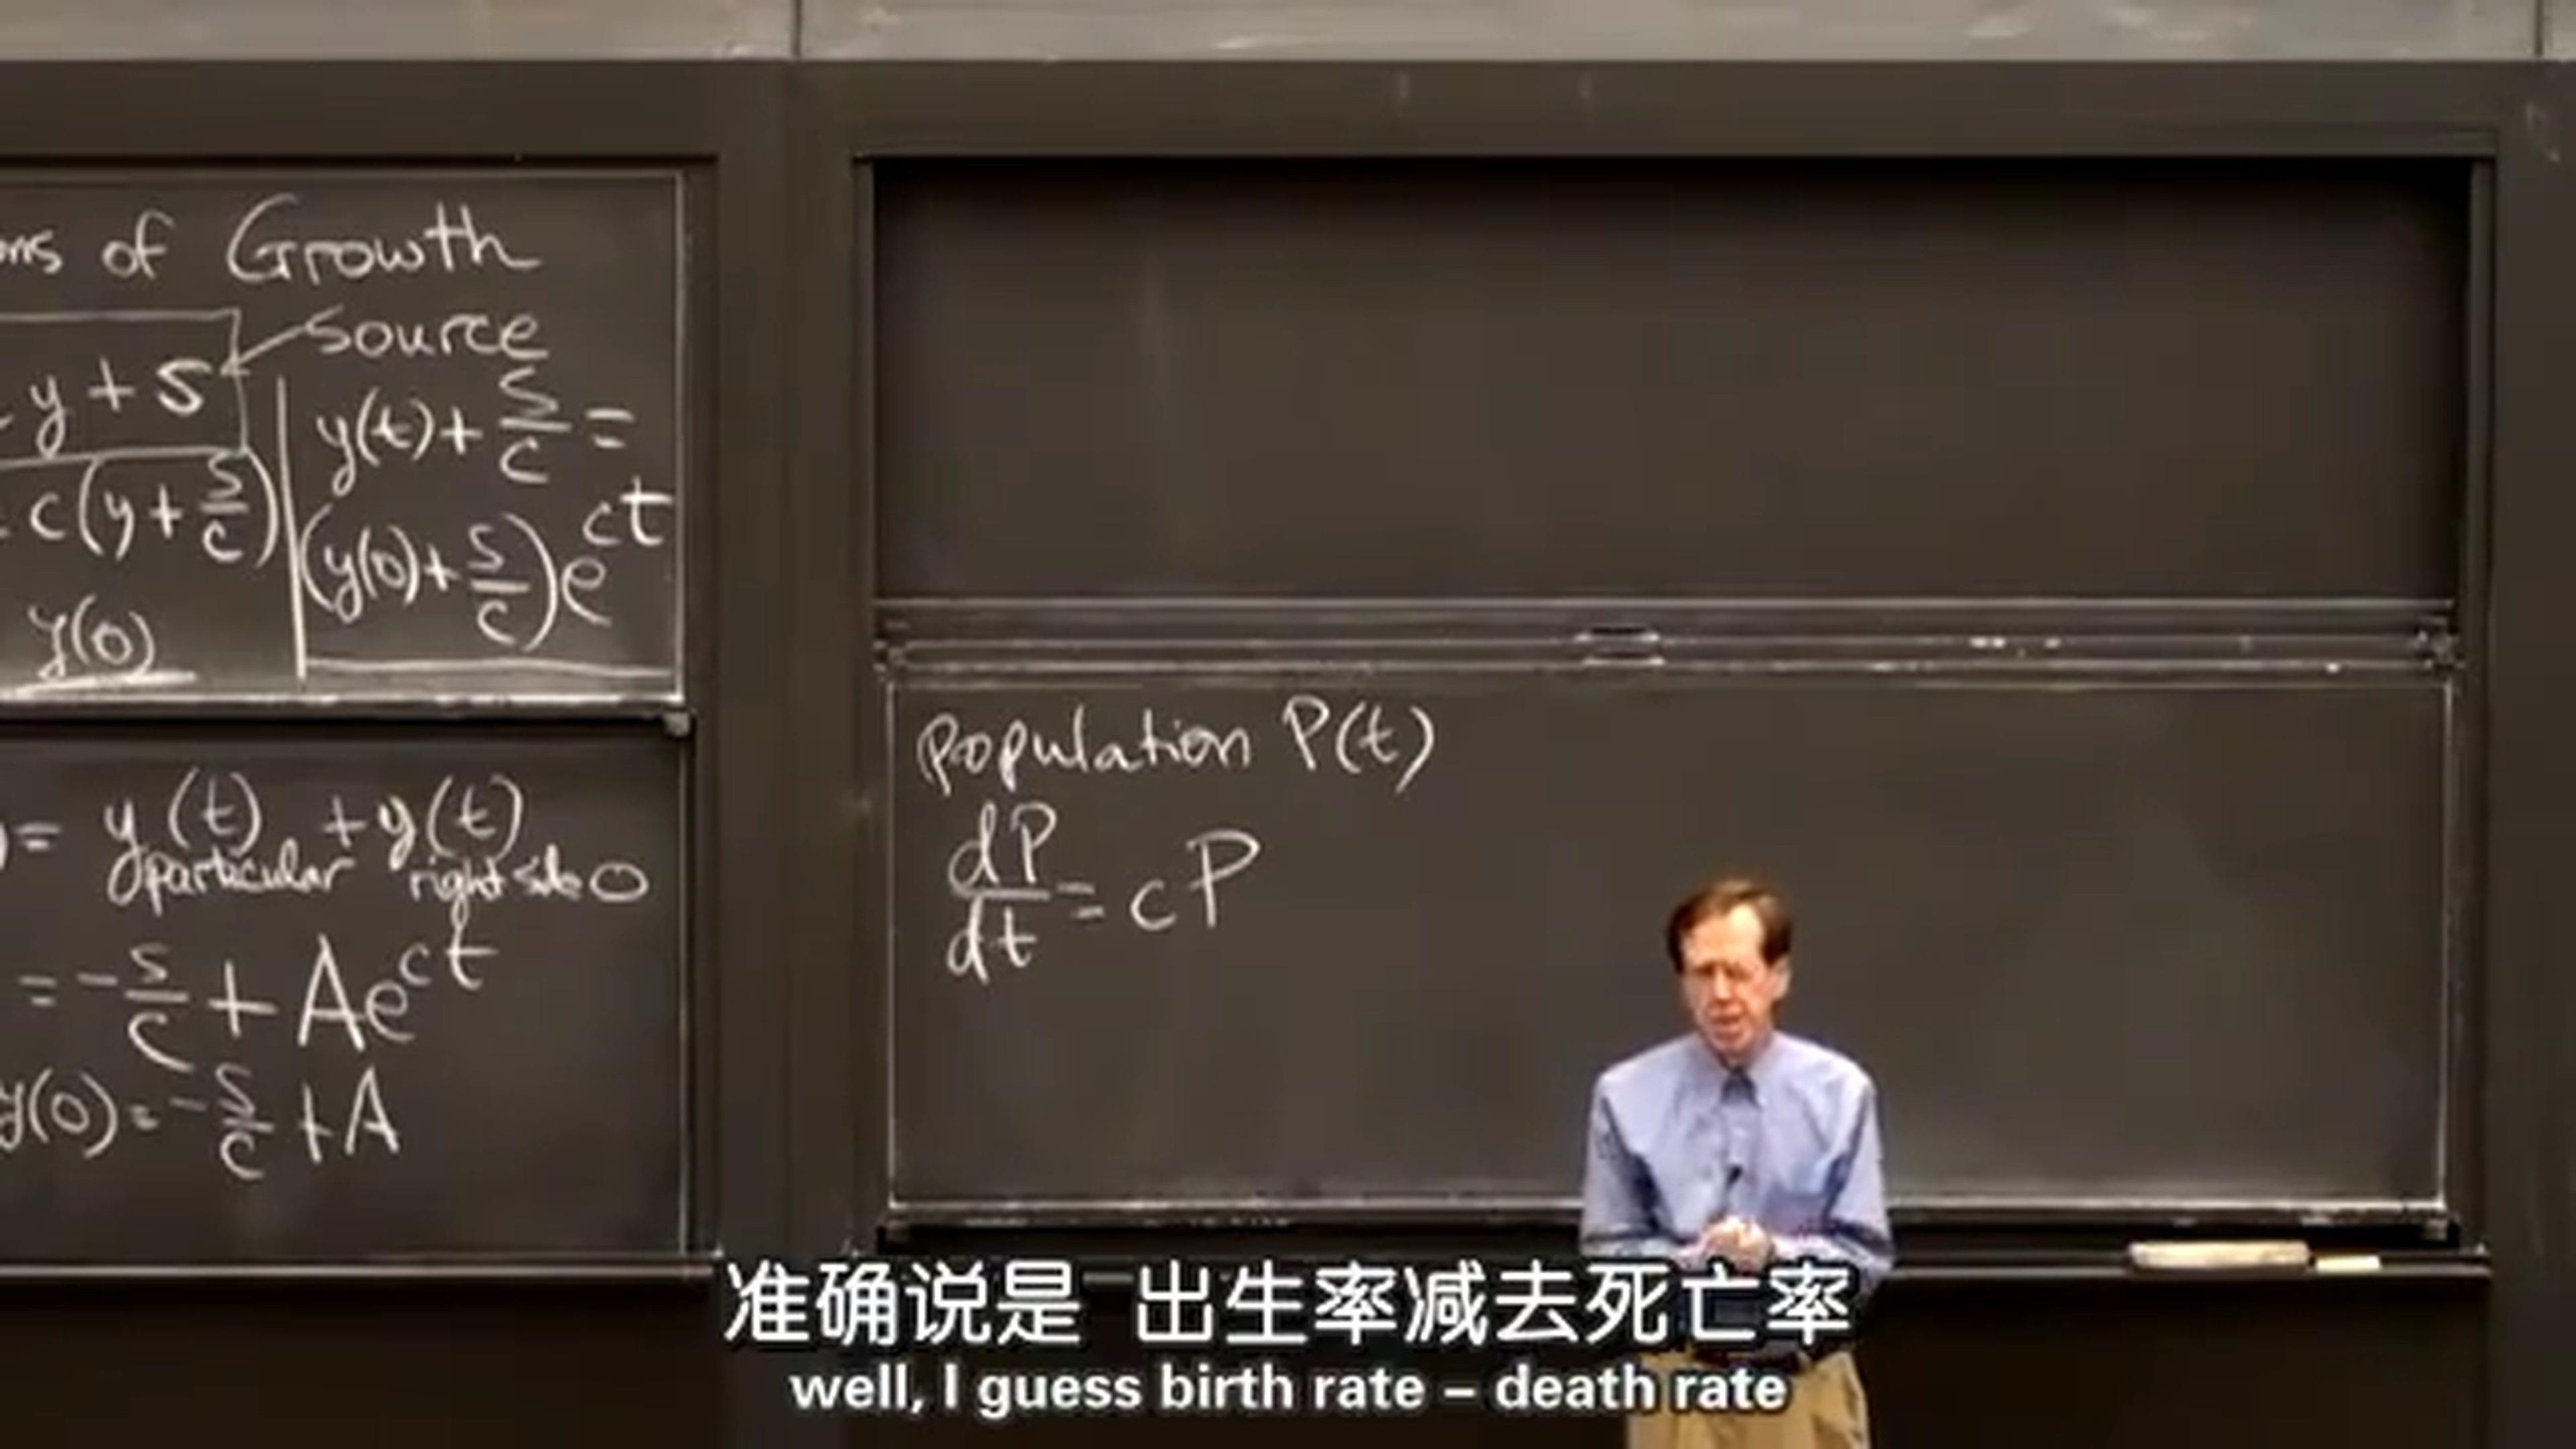 ons of Growth
source
y + s
c(y + s/c)
y(0)
y(t) + s/c =
(y(0) + s/c)e^ct
= y(t) + y(t)
particular right side 0
= -s/c + Ae^ct
y(0) = -s/c + A
population P(t)
dP/dt = cP
准确说是 出生率减去死亡率
well, I guess birth rate – death rate